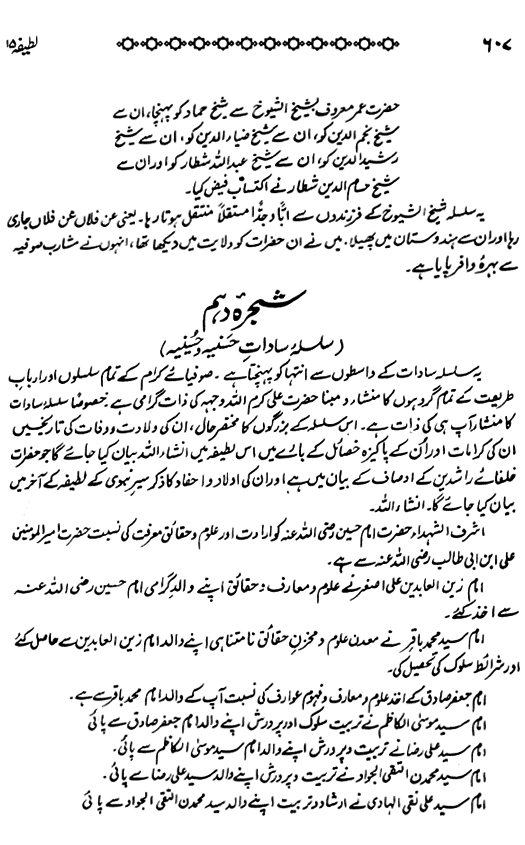 ۶۰۷ لطیفہ ۱۵
حضرت عمر معروف بشیخ الشیوخ سے شیخ حماد کو پہنچا، ان سے
شیخ نجم الدین کو، ان سے شیخ ضیاء الدین کو، ان سے شیخ
رشید الدین کو، ان سے شیخ عبداللہ شطار کو اور ان سے
شیخ حسام الدین شطار نے اکتساب فیض کیا۔
یہ سلسلہ شیخ الشیوخ کے فرزندوں سے اباً وجداً مستقلاً منتقل ہوتا رہا۔ یعنی عن فلاں عن فلاں جاری
رہا اور ان سے ہندوستان میں پھیلا۔ میں نے ان حضرات کو ولایت میں دیکھا تھا، انہوں نے مشارب صوفیہ
سے بہرۂ وافر پایا ہے۔
شجرۂ دہم
(سلسلۂ ساداتِ حَسنیہ و حُسینیہ)
یہ سلسلہ سادات کے واسطوں سے انتہا کو پہنچتا ہے۔ صوفیائے کرام کے تمام سلسلوں اور ارباب
طریقت کے تمام گروہوں کا منشاء و مبنا حضرت علی کرم اللہ وجہہ کی ذات گرامی ہے خصوصاً سلسلۂ سادات
کا منشا آپ ہی کی ذات ہے۔ اس سلسلہ کے بزرگوں کا مختصر حال، ان کی ولادت و وفات کی تاریخیں
ان کی کرامات اور اُن کے پاکیزہ خصائل کے بارے میں اس لطیفہ میں انشاء اللہ بیان کیا جائے گا جو حضرات
خلفائے راشدین کے اوصاف کے بیان میں ہے اور ان کی اولاد و احفاد کا ذکر سیر نبوی کے لطیفہ کے آخر میں
بیان کیا جائے گا۔ انشاء اللہ۔
اشرف الشہداء حضرت امام حسین رضی اللہ عنہ کو ارادت اور علوم و حقائق معرفت کی نسبت حضرت امیر المومنین
علی ابن ابی طالب رضی اللہ عنہ سے ہے۔
امام زین العابدین علی اصغر نے علوم و معارف و حقائق اپنے والد گرامی امام حسین رضی اللہ عنہ
سے اخذ کئے۔
امام سید محمد باقر نے معدن علوم و مخزن حقائق نامتناہی اپنے والد امام زین العابدین سے حاصل کئے
اور شرائط سلوک کی تحصیل کی۔
امام جعفر صادق کے اخذ علوم و معارف و فہوم عوارف کی نسبت آپ کے والد امام محمد باقر سے ہے۔
امام سید موسیٰ الکاظم نے تربیت سلوک اور پرورش اپنے والد امام جعفر صادق سے پائی
امام سید علی رضا نے تربیت و پرورش اپنے والد امام سید موسیٰ الکاظم سے پائی۔
امام سید محمد ن التقی الجواد نے تربیت و پرورش اپنے والد سید علی رضا سے پائی۔
امام سید علی نقی الہادی نے ارشاد و تربیت اپنے والد سید محمد ن التقی الجواد سے پائی